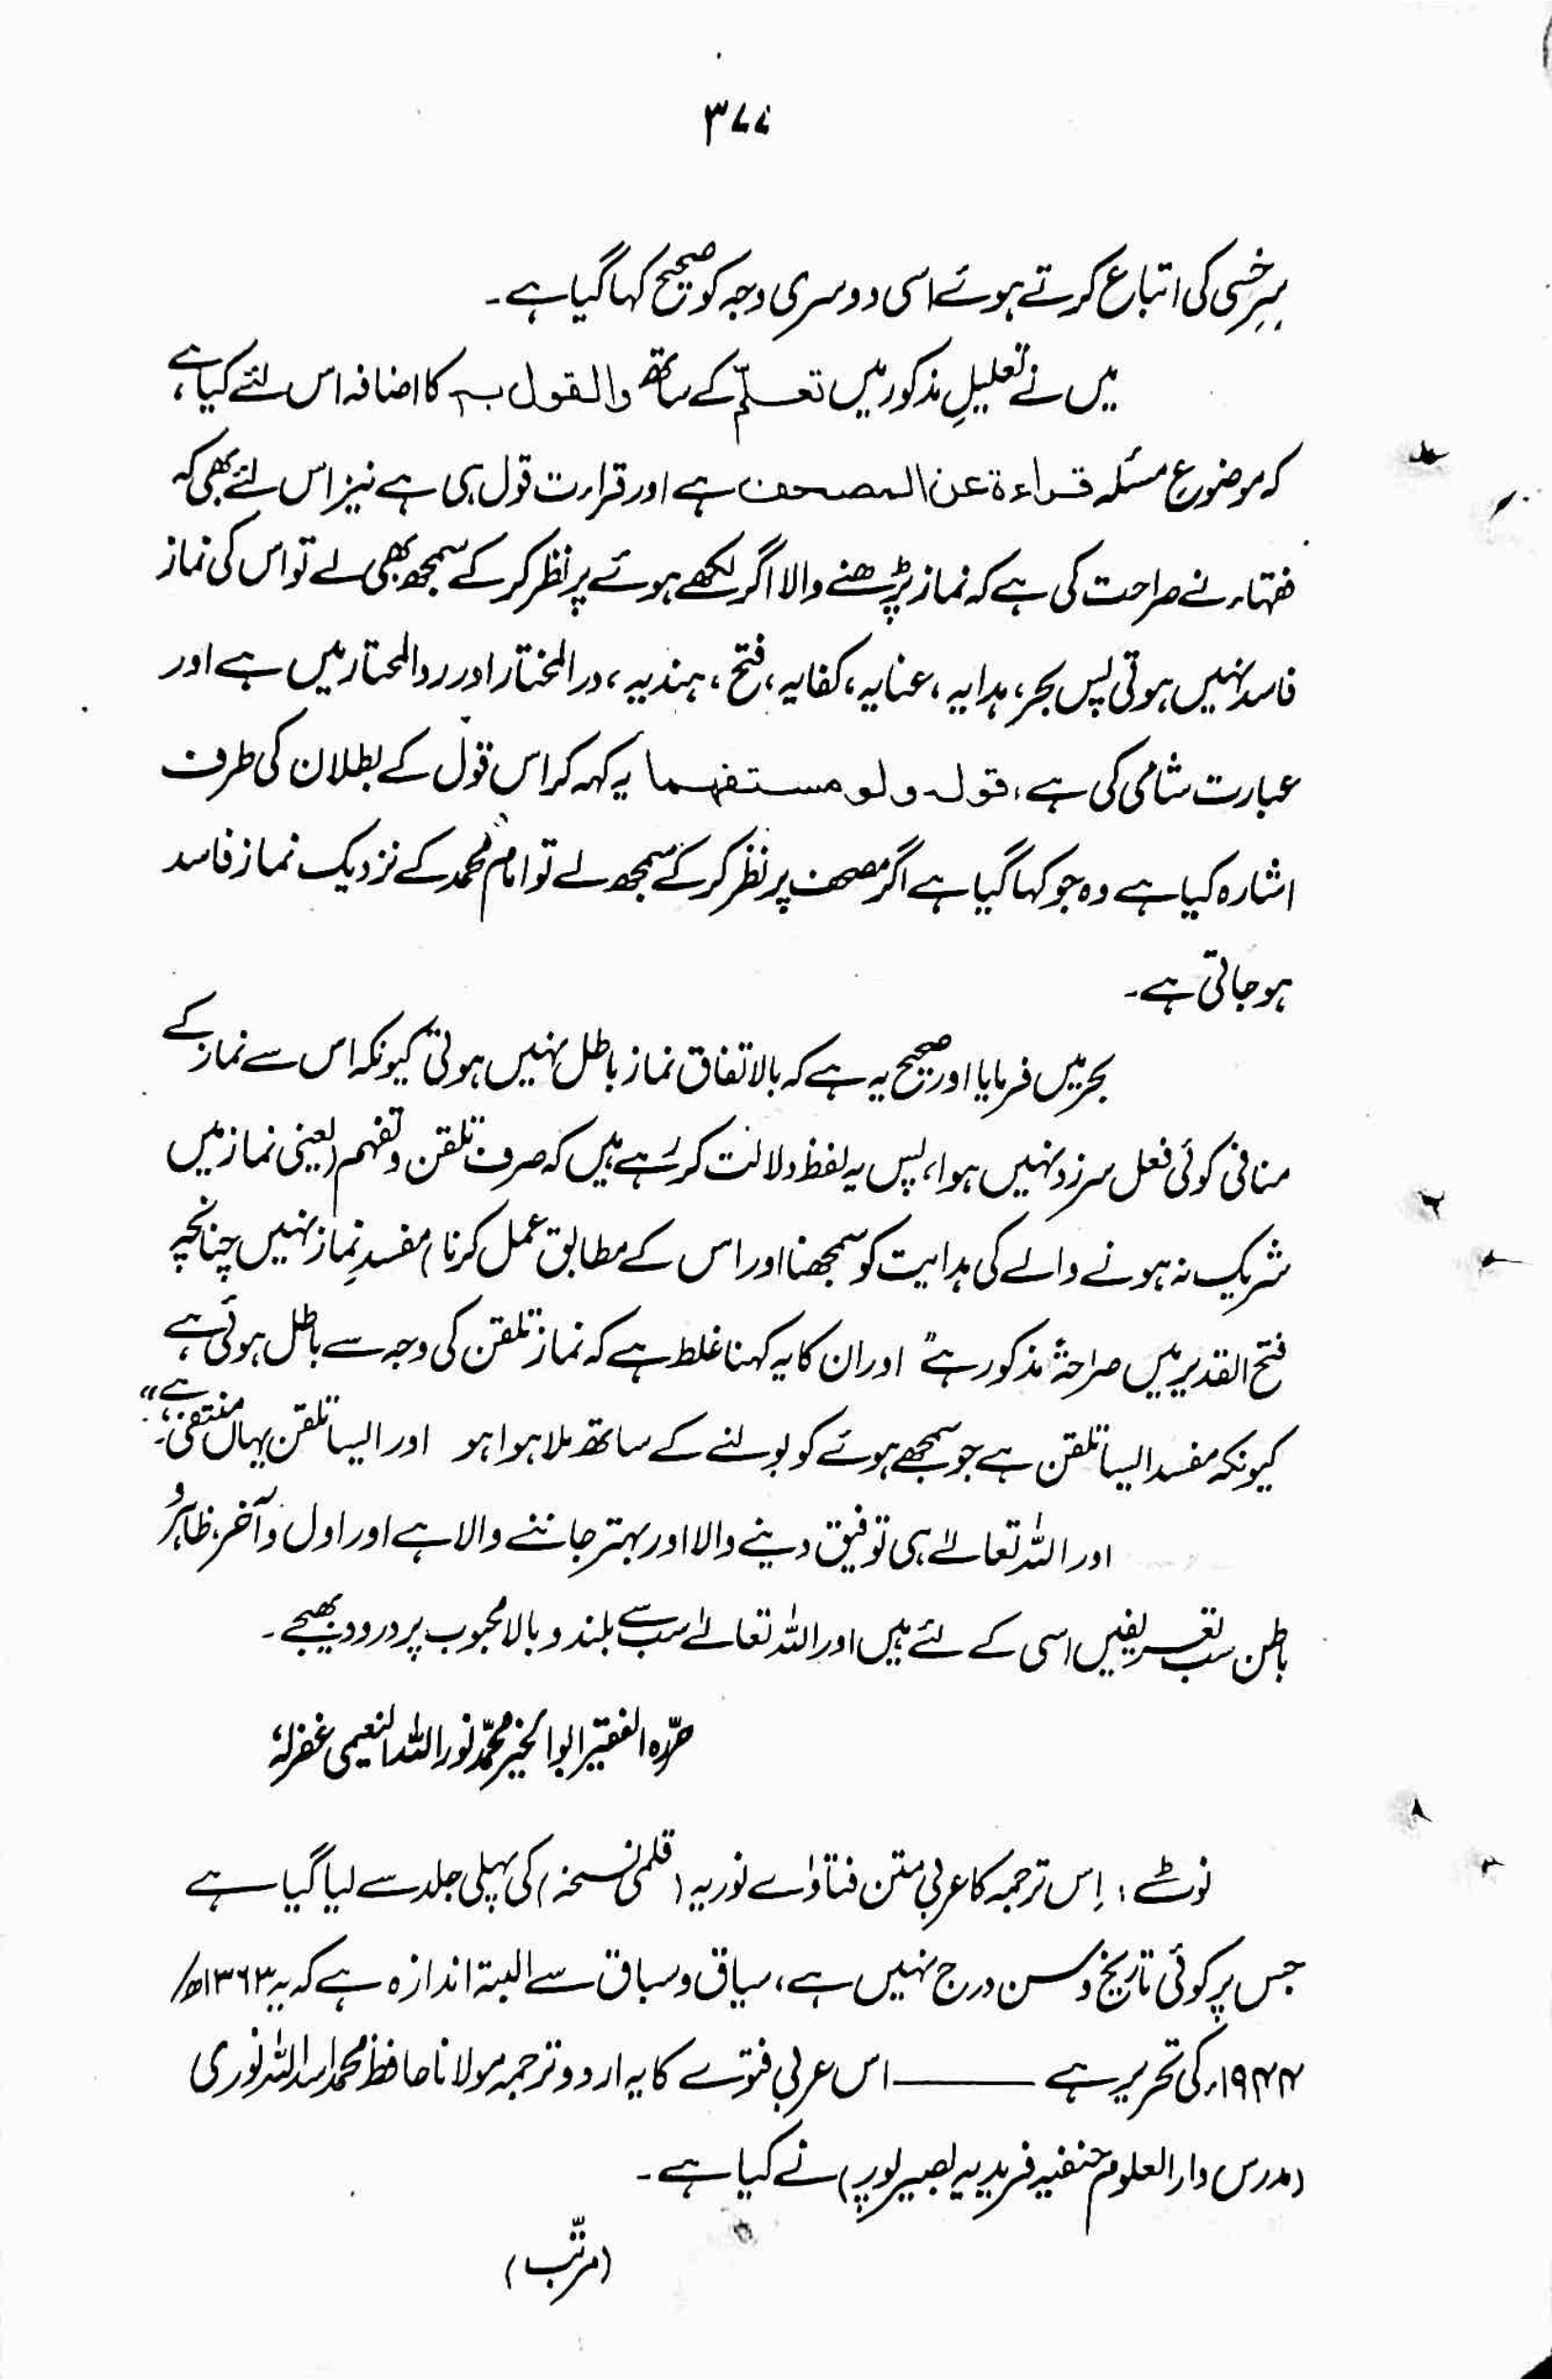 ۳۷۷
سرخسی کی اتباع کرتے ہوئے اسی دوسری وجہ کو صحیح کہا گیا ہے۔
میں نے تعلیلِ مذکور میں تعلّم کے ساتھ والقول بہ کا اضافہ اس لئے کیا ہے،
کہ موضوع مسئلہ قراءة عن المصحف ہے اور قراءت قول ہی ہے نیز اس لئے بھی کہ
فقہاء نے صراحت کی ہے کہ نماز پڑھنے والا اگر لکھے ہوئے پر نظر کر کے سمجھ بھی لے تو اس کی نماز
فاسد نہیں ہوتی پس بحر، ہدایہ، عنایہ، کفایہ، فتح، ہندیہ، درالمختار اور ردالمحتار میں ہے اور
عبارت شامی کی ہے، قولہ ولو مستفہما یہ کہہ کر اس قول کے بطلان کی طرف
اشارہ کیا ہے وہ جو کہا گیا ہے اگر مصحف پر نظر کر کے سمجھ لے تو امام محمد کے نزدیک نماز فاسد
ہو جاتی ہے۔
بحر میں فرمایا اور صحیح یہ ہے کہ بالاتفاق نماز باطل نہیں ہوتی کیونکہ اس سے نماز کے
منافی کوئی فعل سرزد نہیں ہوا، پس یہ لفظ دلالت کر رہے ہیں کہ صرف تلقن و تفہم (یعنی نماز میں
شریک نہ ہونے والے کی ہدایت کو سمجھنا اور اس کے مطابق عمل کرنا) مفسدِ نماز نہیں چنانچہ
فتح القدیر میں صراحۃً مذکور ہے" اور ان کا یہ کہنا غلط ہے کہ نماز تلقن کی وجہ سے باطل ہوئی ہے
کیونکہ مفسد ایسا تلقن ہے جو سمجھے ہوئے کو بولنے کے ساتھ ملا ہوا ہو اور ایسا تلقن یہاں منتفی ہے۔"
اور اللہ تعالےٰ ہی توفیق دینے والا اور بہتر جاننے والا ہے اور اول و آخر، ظاہر و
باطن سب تعریفیں اسی کے لئے ہیں اور اللہ تعالےٰ سب سے بلند و بالا محبوب پر درود بھیجے۔
حرّرہ الفقیر ابوالخیر محمّد نور اللہ النعیمی غفرلہٗ
نوٹ: اِس ترجمہ کا عربی متن فتاوٰے نوریہ (قلمی نسخہ) کی پہلی جلد سے لیا گیا ہے
جس پر کوئی تاریخ و سن درج نہیں ہے، سیاق و سباق سے البتہ اندازہ ہے کہ یہ ۱۳۶۳ھ/
۱۹۴۴ء کی تحریر ہے ـــــــــ اس عربی فتوٰے کا یہ اردو ترجمہ مولانا حافظ محمد اسد اللہ نوری
(مدرس دارالعلوم حنفیہ فریدیہ بصیر پور) نے کیا ہے۔
(مرتّب)